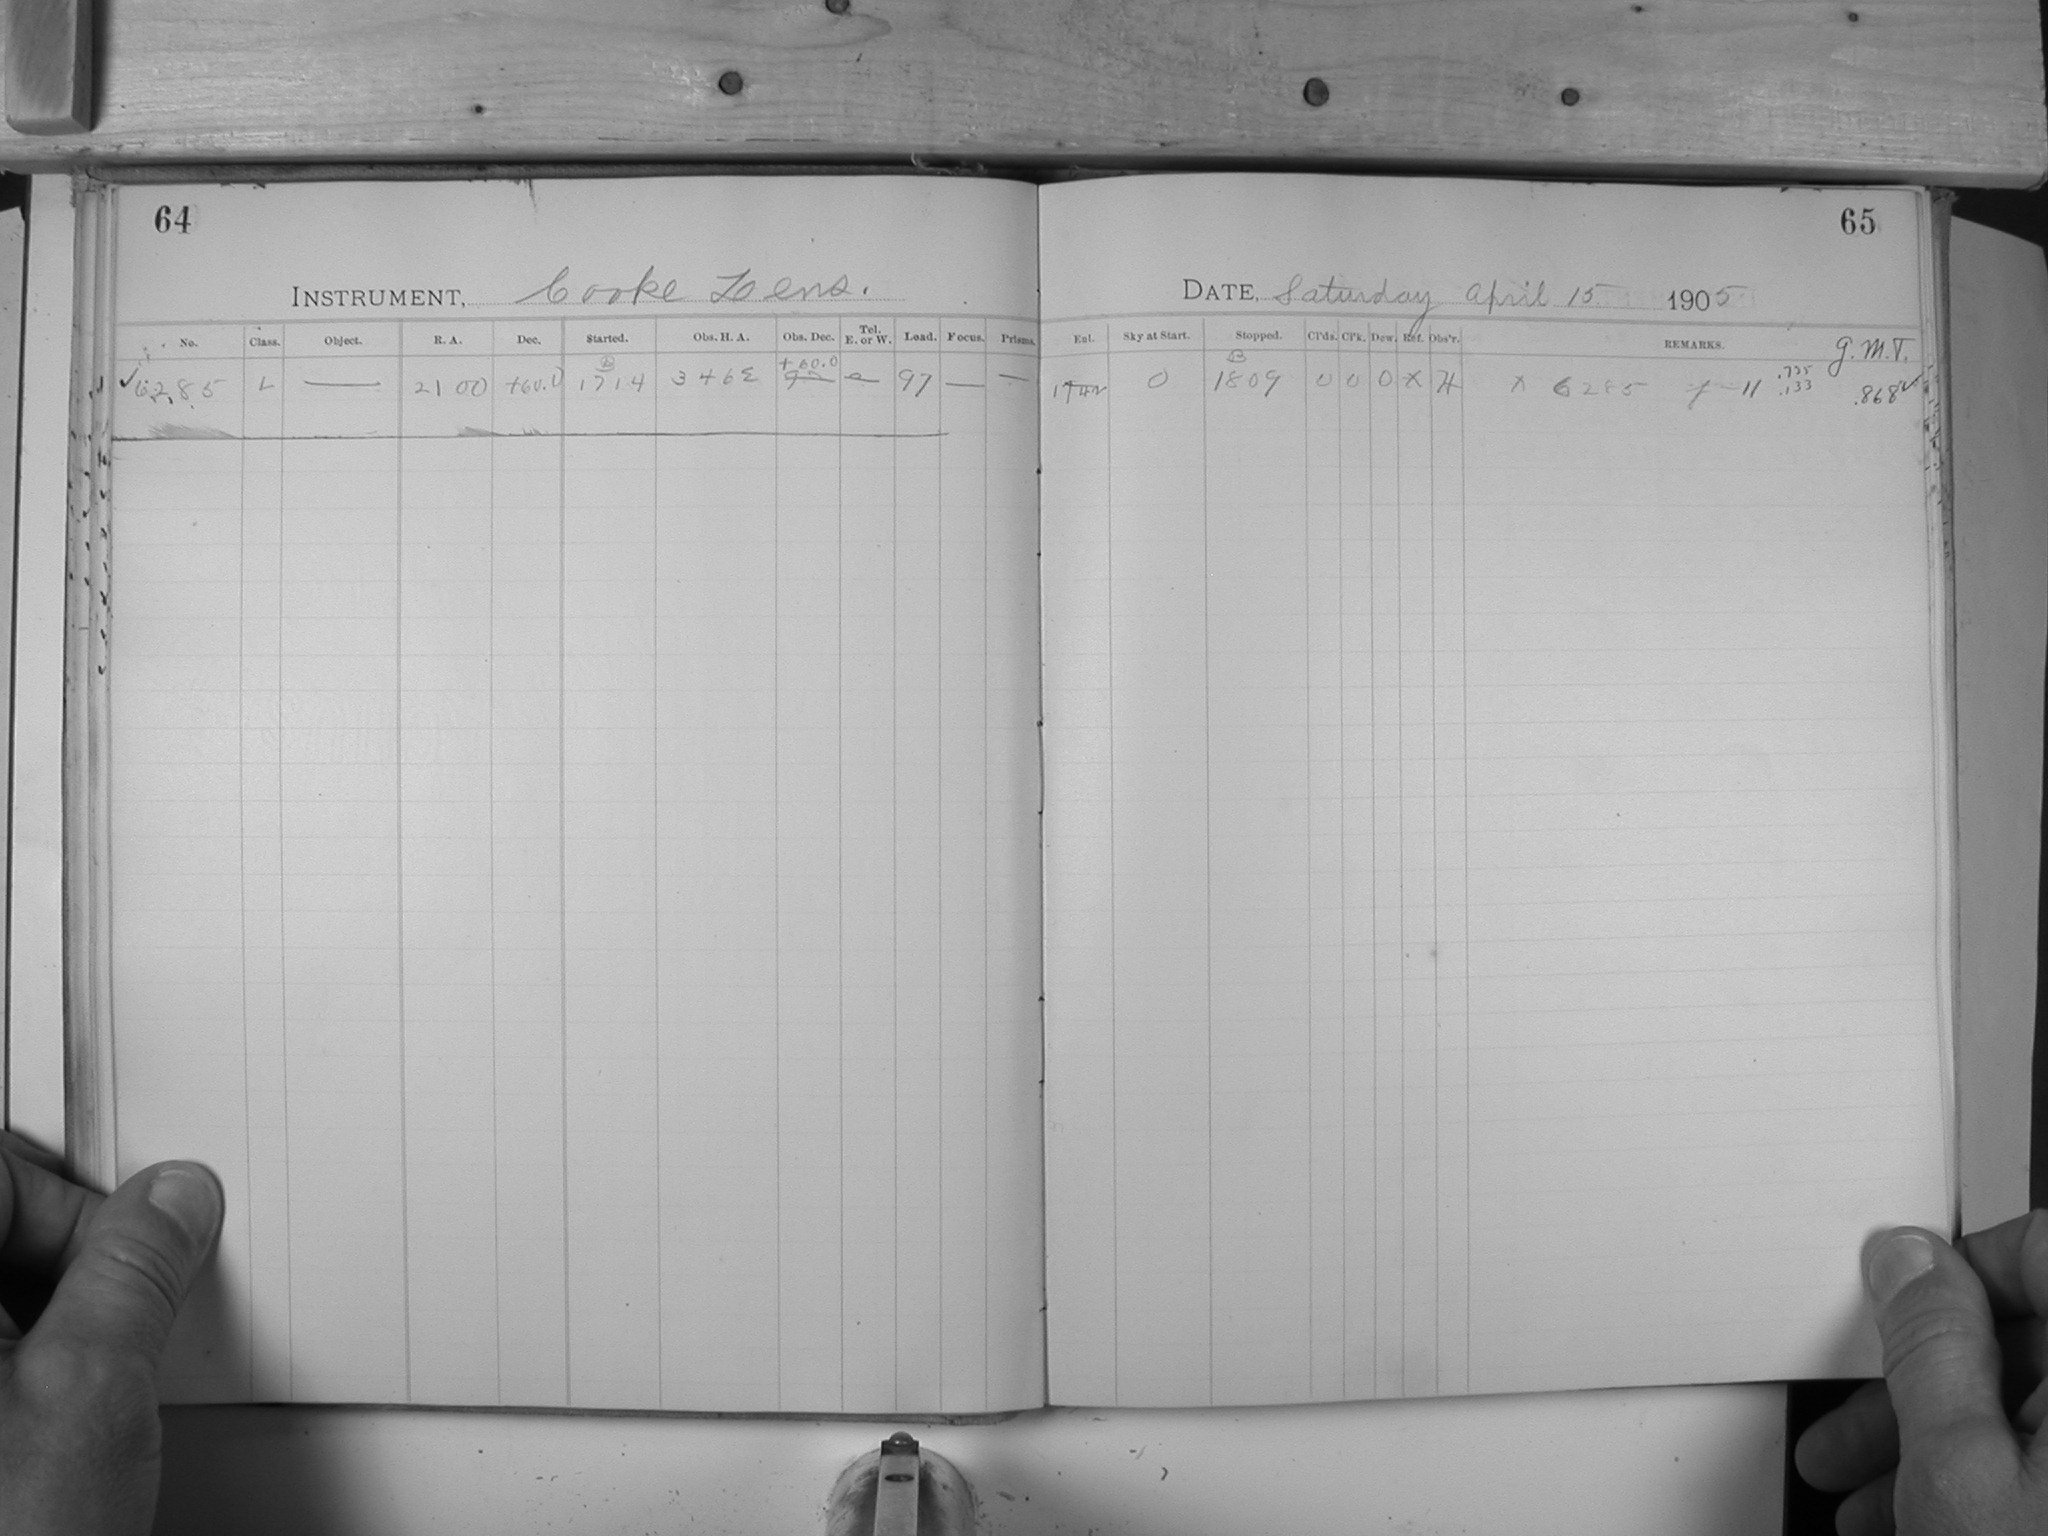 64
INSTRUMENT, Cooke Lens.
No. Class. Object. R. A. Dec. Started. Obs. H. A. Obs. Dec. Tel. E. or W. Load. Focus. Prisms.
+60.0
✓6285 L — 21 00 +60.0 1714 3 46 E e 97 — —
65
DATE, Saturday April 15 1905
Exl. Sky at Start. Stopped. Cl'ds. Cl'k. Dew. Ref. Obs'r. REMARKS. G.M.T.
B
0 1809 0 0 0 X H X 6285 11 .735 .133 .868✓